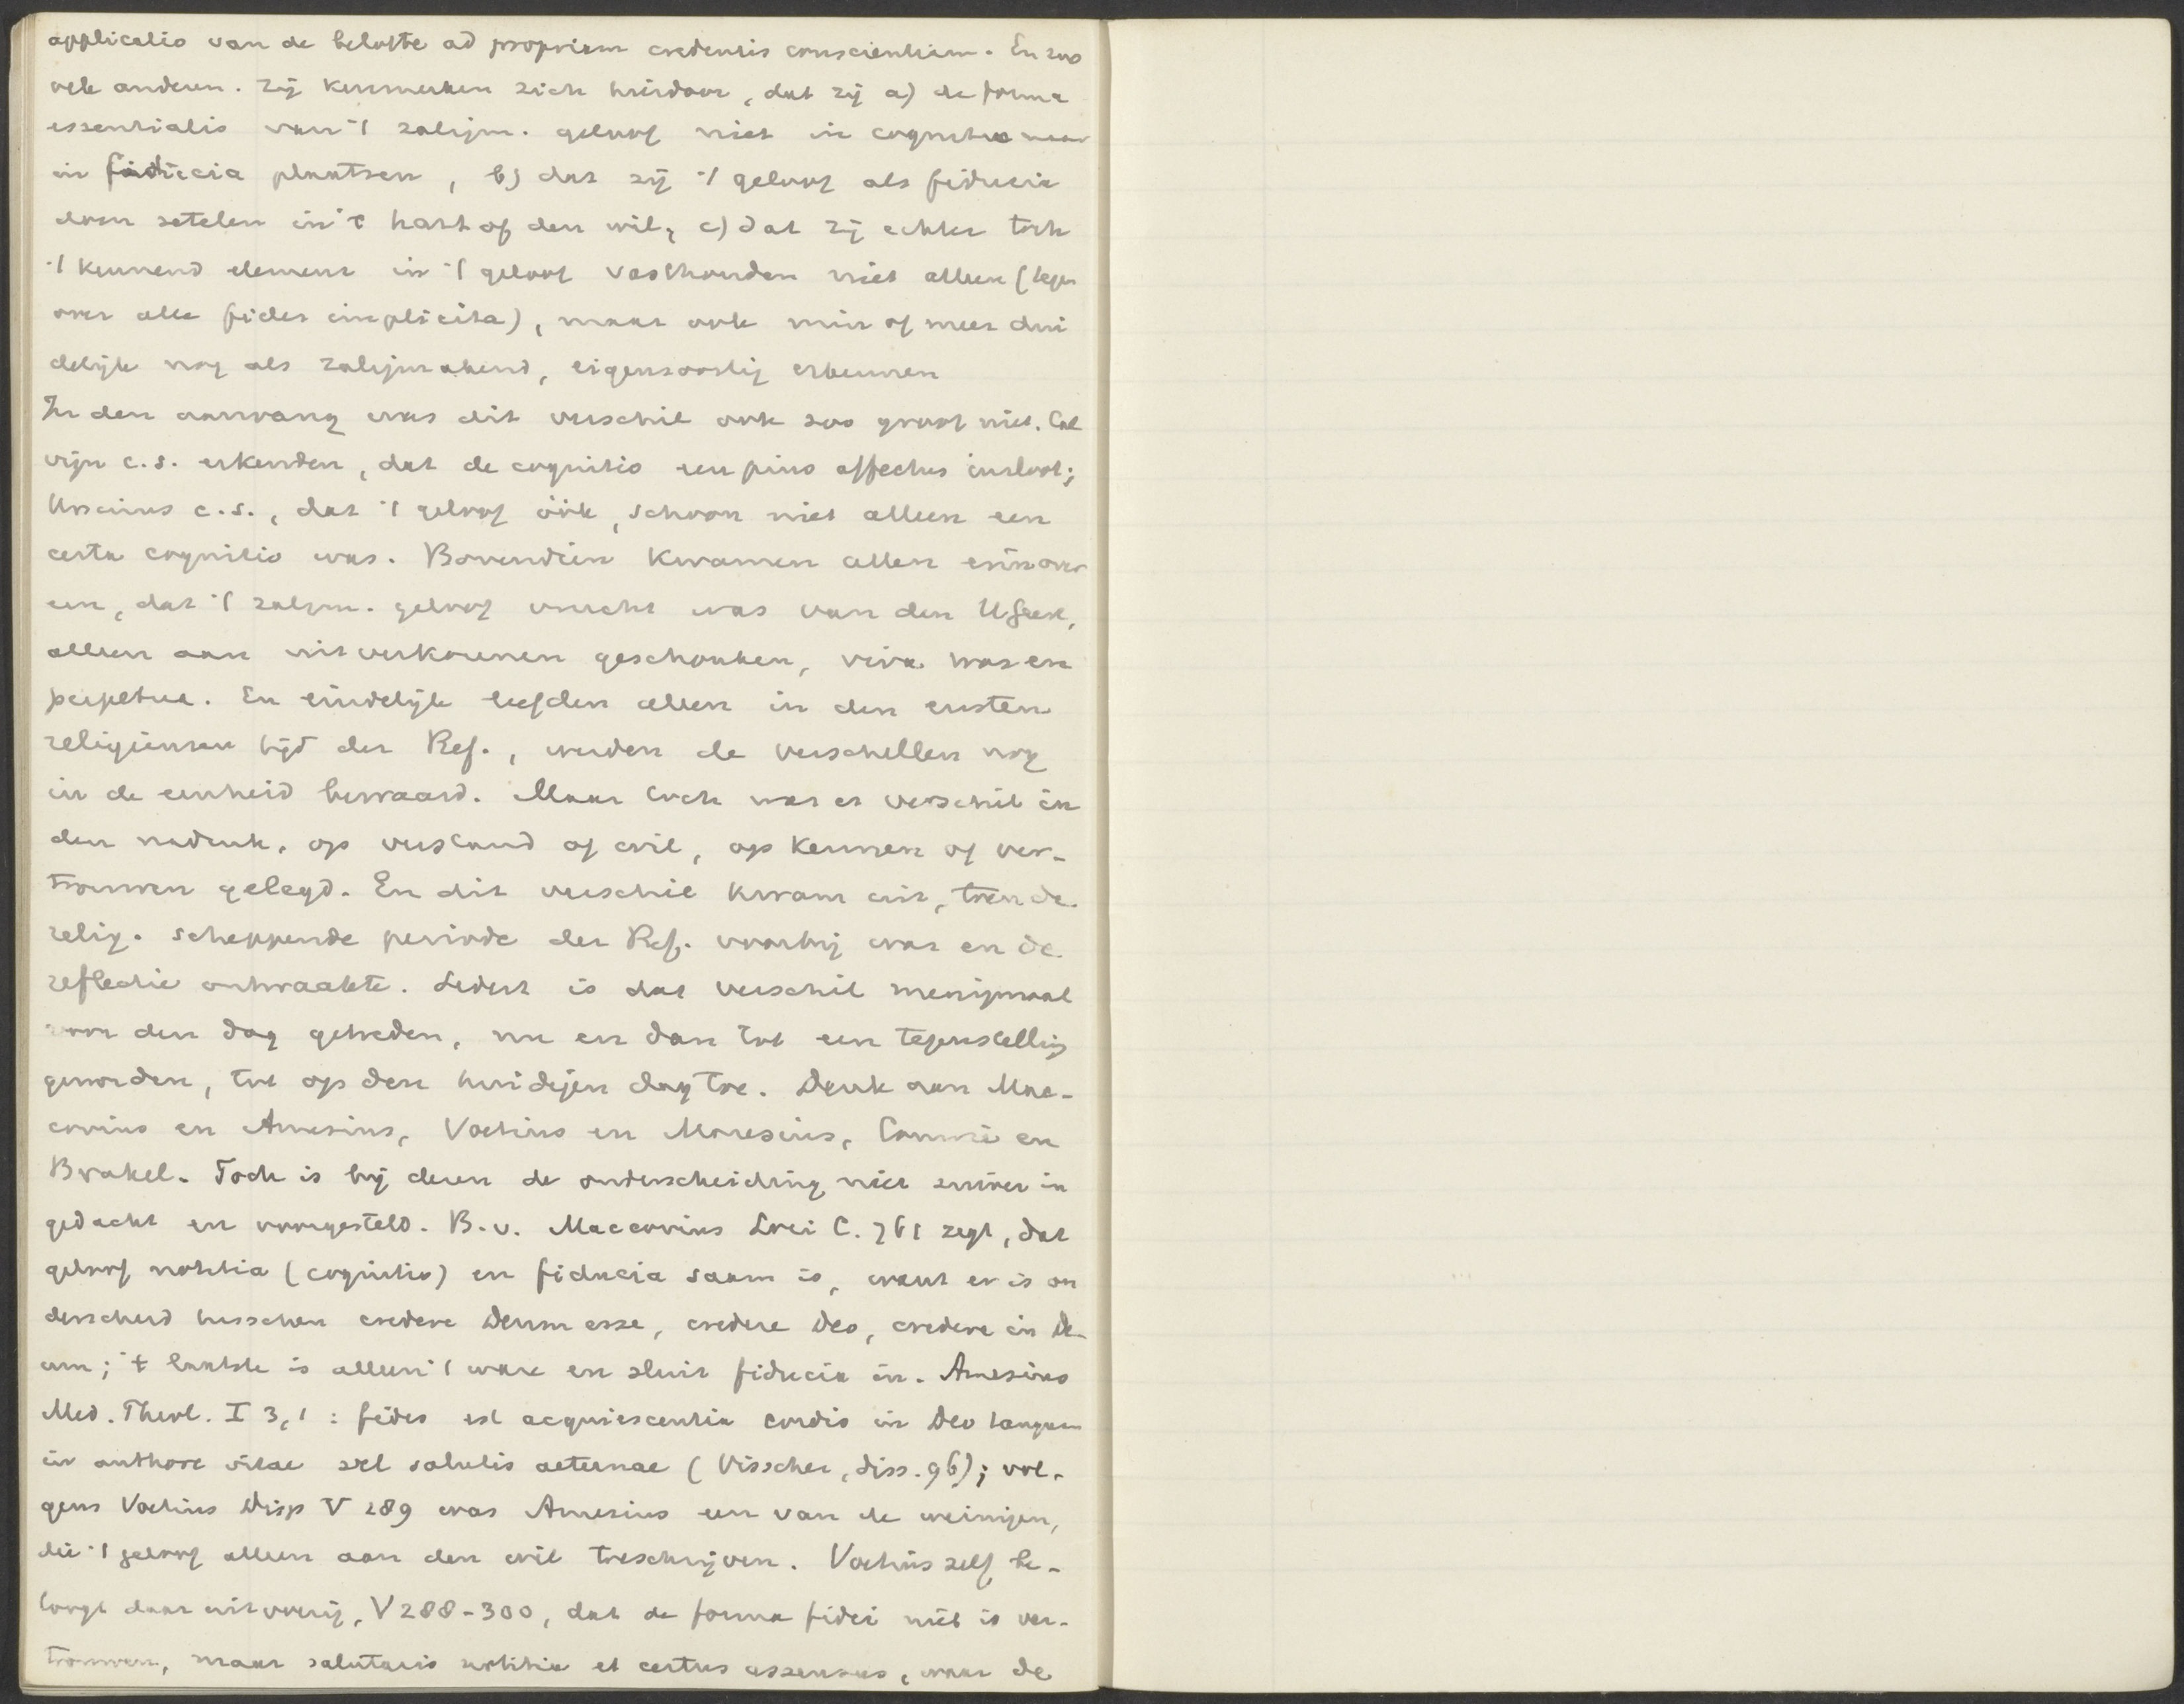 applicatio van de belofte ad propriam credentis conscientiam. En zoo
vele anderen. Zij kenmerken zich hierdoor, dat zij a) de forma
essentialis van 't zaligm. geloof niet in cognitio maar
in fiducia plaatsen, b) dat zij 't geloof als fiducia
doen zetelen in 't hart of den wil, c) dat zij echter toch
't kennend element in 't geloof vasthouden niet alleen (tegen
over alle fides implicita), maar ook min of meer dui
delijk nog als zaligmakend, eigensoortig erkennen
In den aanvang was dit verschil ook zoo groot niet. Cal
vijn c.s. erkenden, dat de cognitio een pius affectus insloot;
Ursinus c.s., dat 't geloof óók, schoon niet alleen een
certa cognitio was. Bovendien kwamen allen erin over
een, dat 't zaligm. geloof vrucht was van den HGeest,
alleen aan uitverkorenen geschonken, viva was en
perpetua. En eindelijk leefden allen in den eersten
religieusen tijd der Ref., werden de verschillen nog
in de eenheid bewaard. Maar toch was er verschil in
den nadruk, op verstand of wil, op kennen of ver-
trouwen gelegd. En dit verschil kwam uit, toen de
relig. scheppende periode der Ref. voorbij was en de
reflectie ontwaakte. Sedert is dat verschil menigmaal
voor den dag getreden, nu en dan tot een tegenstelling
geworden, tot op den huidigen dag toe. Denk aan Mac-
covius en Amesius, Voetius en Maresius, Comrie en
Brakel. Toch is bij dezen de onderscheiding niet zuiver in
gedacht en voorgesteld. B.v. Maccovius Loci C. 761 zegt, dat
geloof notitia (cognitio) en fiducia saam is, want er is on
derscheid tusschen credere Deum esse, credere Deo, credere in De
um; 't laatste is alleen 't ware en sluit fiducia in. Amesius
Med. Theol. I 3,1: fides est acquiescentia cordis in Deo tanquam
in authore vitae vel salutis aeternae (Visscher, diss. 96); vol-
gens Voetius Disp V 289 was Amesius een van de weinigen,
die 't geloof alleen aan den wil toeschrijven. Voetius zelf be-
toogt daar uitvoerig, V 288-300, dat de forma fidei niet is ver-
trouwen, maar salutaris notitia et certus assensus, waar de